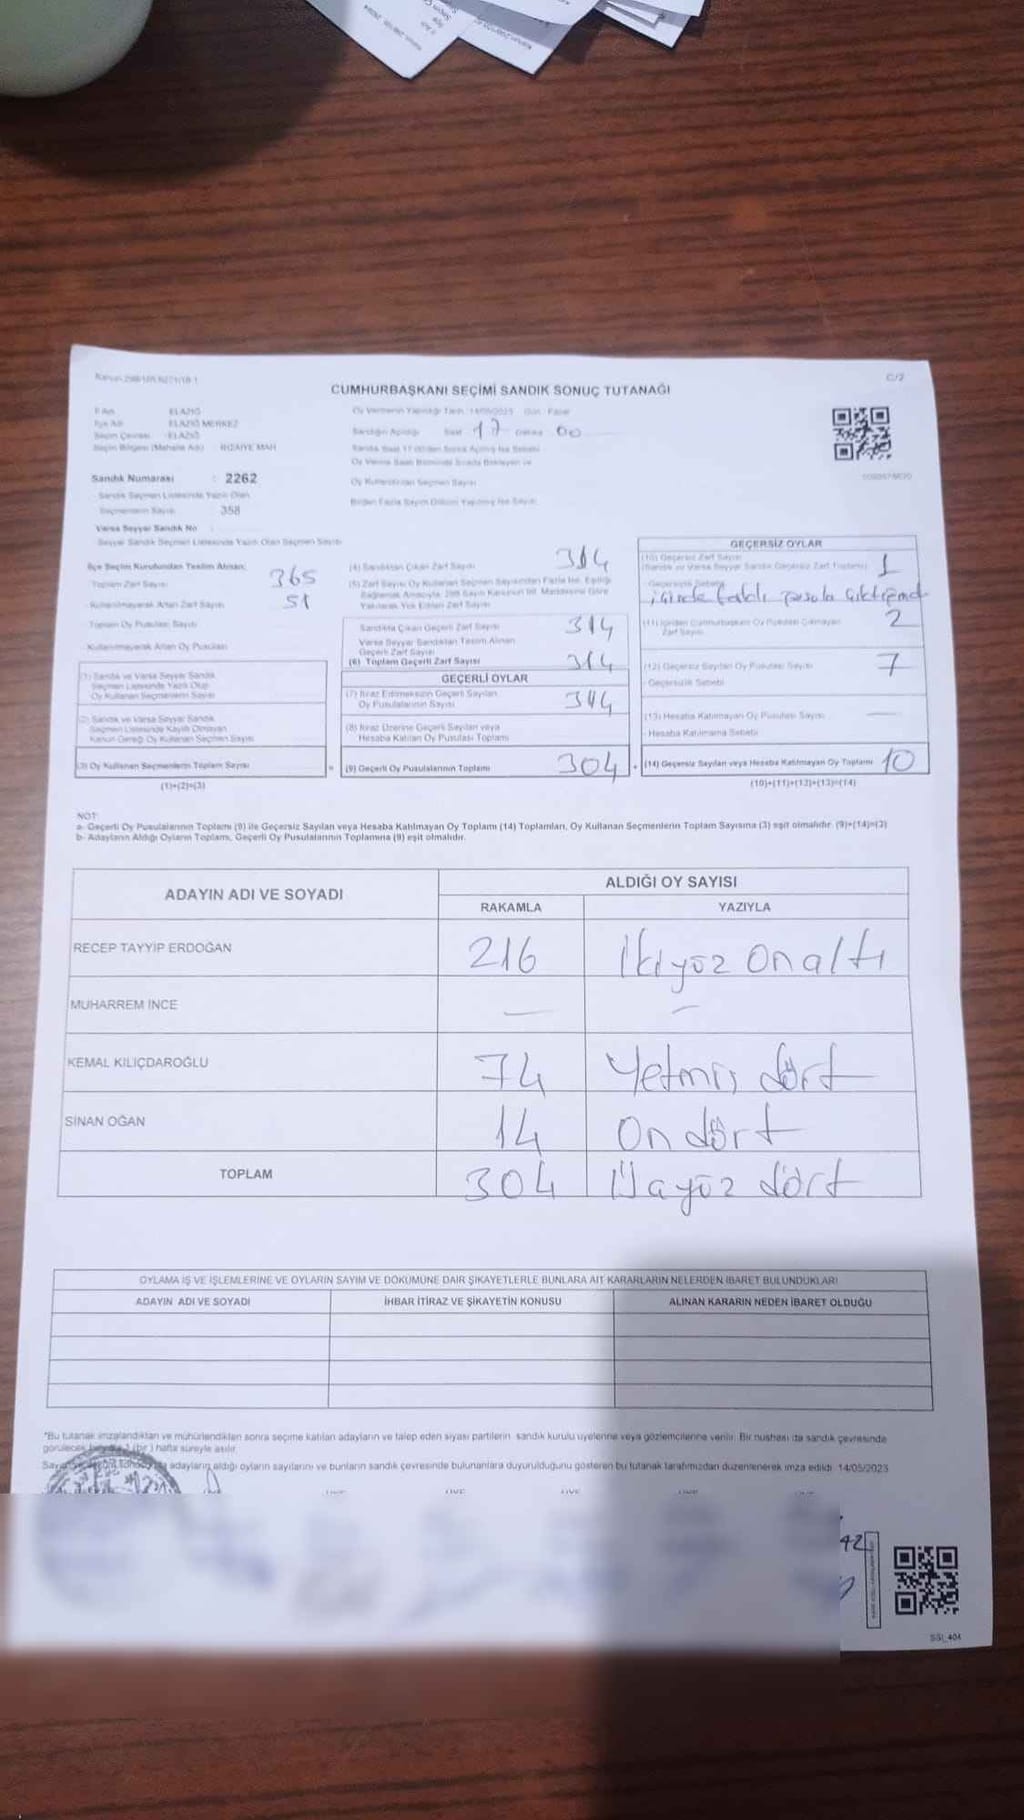 C/2
CUMHURBAŞKANI SEÇİMİ SANDIK SONUÇ TUTANAĞI
İl Adı ELAZIĞ
İlçe Adı ELAZIĞ MERKEZ
Seçim Çevresi ELAZIĞ
Seçim Bölgesi (Mahalle Adı) RIZAİYE MAH
Sandık Numarası : 2262
Sandık Seçmen Listesinde Yazılı Olan
Seçmenlerin Sayısı 358
Varsa Seyyar Sandık No
Seyyar Sandık Seçmen Listesinde Yazılı Olan Seçmen Sayısı
Oy Vermenin Yapıldığı Tarih : 14/05/2023 Gün : Pazar
Sandığın Açıldığı Saat 17 Dakika 00
Oy Kullandırılan Seçmen Sayısı
Birden Fazla Sayım Döküm Yapılmış İse Sayısı
İlçe Seçim Kurulundan Teslim Alınan;
Toplam Zarf Sayısı 365
- Kullanılmayarak Artan Zarf Sayısı 51
Toplam Oy Pusulası Sayısı
- Kullanılmayarak Artan Oy Pusulası
(1) Sandık ve Varsa Seyyar Sandık
Seçmen Listesinde Yazılı Olup
Oy Kullanan Seçmenlerin Sayısı
(2) Sandık ve Varsa Seyyar Sandık
Seçmen Listesinde Kayıtlı Olmayan
Kanun Gereği Oy Kullanan Seçmen Sayısı
(3) Oy Kullanan Seçmenlerin Toplam Sayısı
(1)+(2)=(3)
(4) Sandıktan Çıkan Zarf Sayısı 314
(5) Zarf Sayısı Oy Kullanan Seçmen Sayısından Fazla İse, Eşitliği
Sağlamak Amacıyla, 298 Sayılı Kanunun 98. Maddesine Göre
Yakılarak Yok Edilen Zarf Sayısı
Sandıkta Çıkan Geçerli Zarf Sayısı 314
Varsa Seyyar Sandıktan Teslim Alınan
Geçerli Zarf Sayısı
(6) Toplam Geçerli Zarf Sayısı 314
GEÇERLİ OYLAR
(7) İtiraz Edilmeksizin Geçerli Sayılan
Oy Pusulalarının Sayısı 344
(8) İtiraz Üzerine Geçerli Sayılan veya
Hesaba Katılan Oy Pusulası Toplamı
= (9) Geçerli Oy Pusulalarının Toplamı 304
GEÇERSİZ OYLAR
(10) Geçersiz Zarf Sayısı
(Sandık ve Varsa Seyyar Sandık Geçersiz Zarf Toplamı) 1
(11) İçinden Cumhurbaşkanı Oy Pusulası Çıkmayan
Zarf Sayısı 2
(12) Geçersiz Sayılan Oy Pusulası Sayısı 7
- Geçersizlik Sebebi
(13) Hesaba Katılmayan Oy Pusulası Sayısı —
- Hesaba Katılmama Sebebi
+ (14) Geçersiz Sayılan veya Hesaba Katılmayan Oy Toplamı 10
(10)+(11)+(12)+(13)=(14)
NOT:
a- Geçerli Oy Pusulalarının Toplamı (9) ile Geçersiz Sayılan veya Hesaba Katılmayan Oy Toplamı (14) Toplamları, Oy Kullanan Seçmenlerin Toplam Sayısına (3) eşit olmalıdır. (9)+(14)=(3)
b- Adayların Aldığı Oyların Toplamı, Geçerli Oy Pusulalarının Toplamına (9) eşit olmalıdır.
ADAYIN ADI VE SOYADI
ALDIĞI OY SAYISI
RAKAMLA YAZIYLA
RECEP TAYYİP ERDOĞAN 216 İkiyüz Onaltı
MUHARREM İNCE — —
KEMAL KILIÇDAROĞLU 74 Yetmiş dört
SİNAN OĞAN 14 On dört
TOPLAM 304 Üçyüz dört
OYLAMA İŞ VE İŞLEMLERİNE VE OYLARIN SAYIM VE DÖKÜMÜNE DAİR ŞİKAYETLERLE BUNLARA AİT KARARLARIN NELERDEN İBARET BULUNDUKLARI
ADAYIN ADI VE SOYADI İHBAR İTİRAZ VE ŞİKAYETİN KONUSU ALINAN KARARIN NEDEN İBARET OLDUĞU
*Bu tutanak imzalandıktan ve mühürlendikten sonra seçime katılan adayların ve talep eden siyasi partilerin sandık kurulu üyelerine veya gözlemcilerine verilir. Bir nüshası da sandık çevresinde
görülecek bir yere 1 (bir) hafta süreyle asılır.
adayların aldığı oyların sayılarını ve bunların sandık çevresinde bulunanlara duyurulduğunu gösteren bu tutanak tarafımızdan düzenlenerek imza edildi. 14/05/2023
42